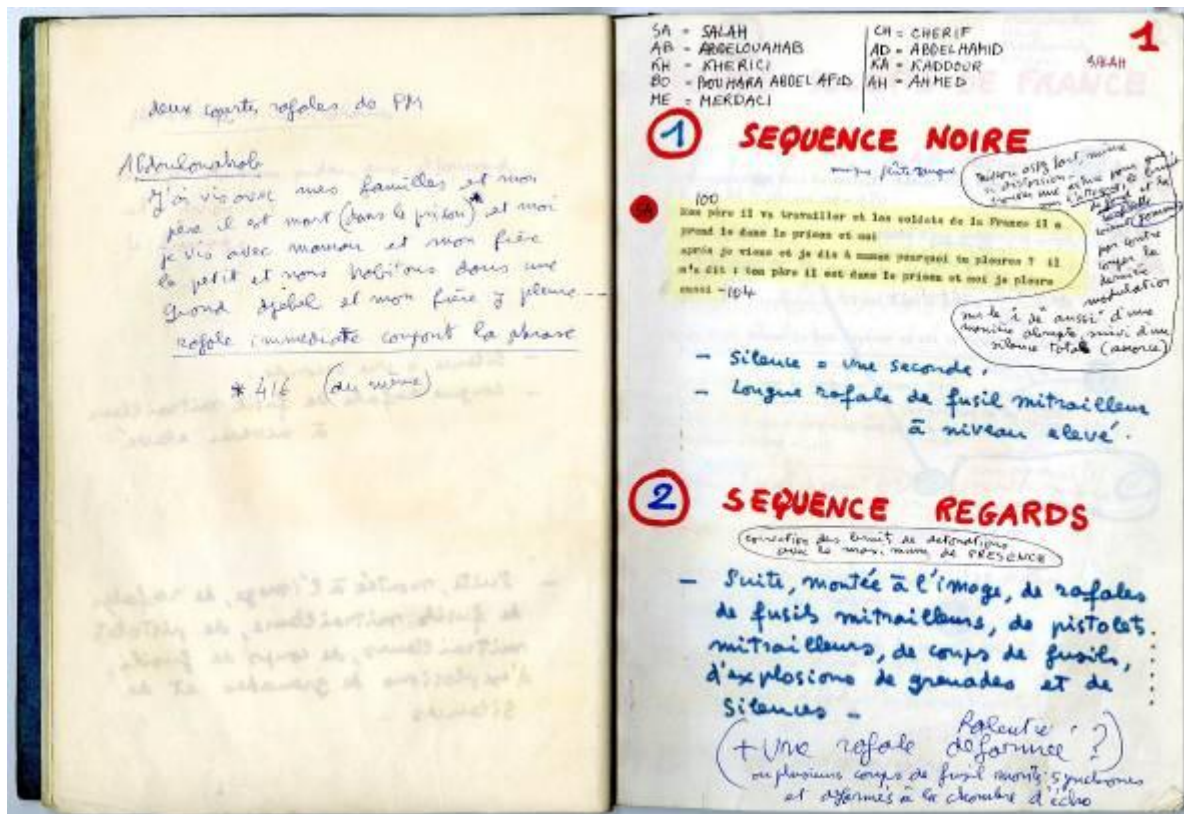 deux courtes rafales de PM
Abdoulouahab
J'ai vis avec mes familles et mon
père il est mort (dans le prison) et moi
je vis avec maman et mon fière
le petit et nous habitons dans une
Grond djebel et mon fière y pleure ---
rafale immediate coupant la phrase
* 416 (du même)
SA = SALAH
AB = ABDELOUAHAB
KH = KHERICI
BO = BOUHARA ABDEL AFID
ME = MERDACI
CH = CHERIF
AD = ABDELHAMID
KA = KADDOUR
AH = AHMED
SALAH
1
1 SEQUENCE NOIRE
SA
100
père il va travailler et les soldats de la France il a
prend le dans le prison et moi
après je viens et je dis à maman pourquoi tu pleures ? il
m'a dit : ton père il est dans le prison et moi je pleure
aussi -104
par contre
couper la
dernière
modulation
sur le i de "aussi" d'une
manière abrupte, suivi d'un
silence total (amorce)
- Silence = une seconde.
- Longue rafale de fusil mitrailleur
à niveau elevé.
2 SEQUENCE REGARDS
des bruit de detonations
avec le maximum de PRESENCE
- Suite, montée à l'image, de rafales
de fusils mitrailleurs, de pistolets
mitrailleurs, de coups de fusils,
d'explosions de grenades et de
silences -
Ralentie
(+ une rafale deformée ?)
ou plusieurs coups de fusil montés synchrones
et déformés à la chambre d'écho